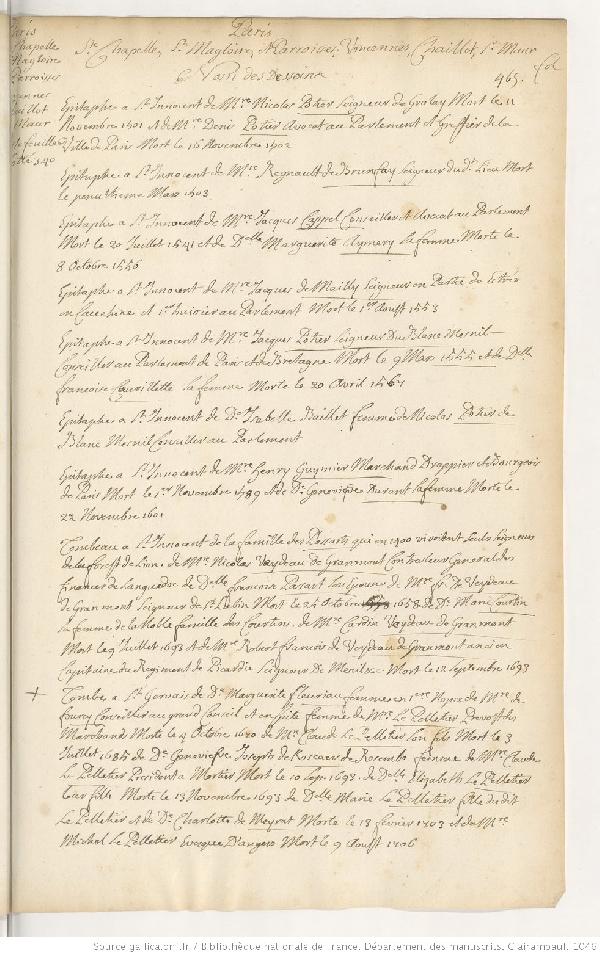 Paris
Ste Chapelle, St Magloire, Parroisses, Vincennes, Chaillot, St Maur
465. fol
Paris
Chapelle
Magloire
Parroisses
Vincennes
Chaillot
Maur
feuillets
340
Epitaphe a St Innocent de Mre Nicolas Potier Seigneur de Grolay Mort le 11
Novembre 1501 et de Mre Denis Potier Avocat au Parlement et Greffier de la
Ville de Paris Mort le 16 Novembre 1502
Epitaphe a St Innocent de Mre Regnault de Brunfay Seigneur du d. Lieu Mort
le penultieme Mars 1503
Epitaphe a St Innocent de Mre Jacques Cappel Conseiller et Avocat au Parlement
Mort le 20 Juillet 1541 et de Delle Marguerite Aymery sa femme Morte le
8 Octobre 1556
Epitaphe a St Innocent de Mre Jacques de Mailly Seigneur en Partie de
et 1er huissier au Parlement Mort le 1er Aoust 1553
Epitaphe a St Innocent de Mre Jacques Potier Seigneur Du Blanc Mesnil
Conseiller au Parlement de Paris et de Bretagne Mort le 9 Mars 1555 et de Delle
francoise Cueillette sa femme Morte le 20 Avril 1567
Epitaphe a St Innocent de De Isabelle Baillet femme de Nicolas Potier de
Blanc Mesnil Conseiller au Parlement
Epitaphe a St Innocent de Mre Henry Guymier Marchand Drappier et Bourgeois
de Paris Mort le 1er Novembre 1589 et De Genevieve Durant sa femme Morte le
22 Novembre 1601
Tombeau a St Innocent de la famille des Dessarts qui en 1300 vivoient seuls Seigneurs
de la forest de Lions. de Mre Nicolas Veydeau de Granmont Controlleur General des
finances de Languedoc de Delle francoise Patart son epouse de Mre fr. de Veydeau
de Granmont Seigneur de St Lubin Mort le 24 Octobre 1658 de De Marie Courtin
sa femme de la Noble famille des Courtins. de Mre Cardin Veydeau de Granmont
Mort le 9 Juillet 1693 et de Mre Robert francois de Veydeau de Granmont ancien
Capitaine du Regiment de Picardie Seigneur de Mort le 12 Septembre 1693
+ Tombe a St Gervais de De Marguerite fleuriau femme en 1res Nopces de Mre de
fourcy Conseiller au grand Conseil et ensuite femme de Mre Le Pelletier Prevost des
Marchands Morte le 4 Octobre de Mr Claude Le Pelletier son fils Mort le 3
Juillet 1685 de De Genevieve Josephe de Roscaer de Rosambo femme de Mre Claude
Le Pelletier President a Mortier Mort le 10 Sep. 1693. de Delle Elizabeth Le Pelletier
leur fille Morte le 13 Novembre 1693 de Delle Marie Le Pelletier fille dudit
Le Pelletier et de De Charlotte de Meyrat Morte le 18 fevrier 1703 et de Mre
Michel Le Pelletier Evesque D'angers Mort le 9 Aoust 1706
Source gallica.bnf.fr / Bibliothèque nationale de France. Département des manuscrits. Clairambault 1046